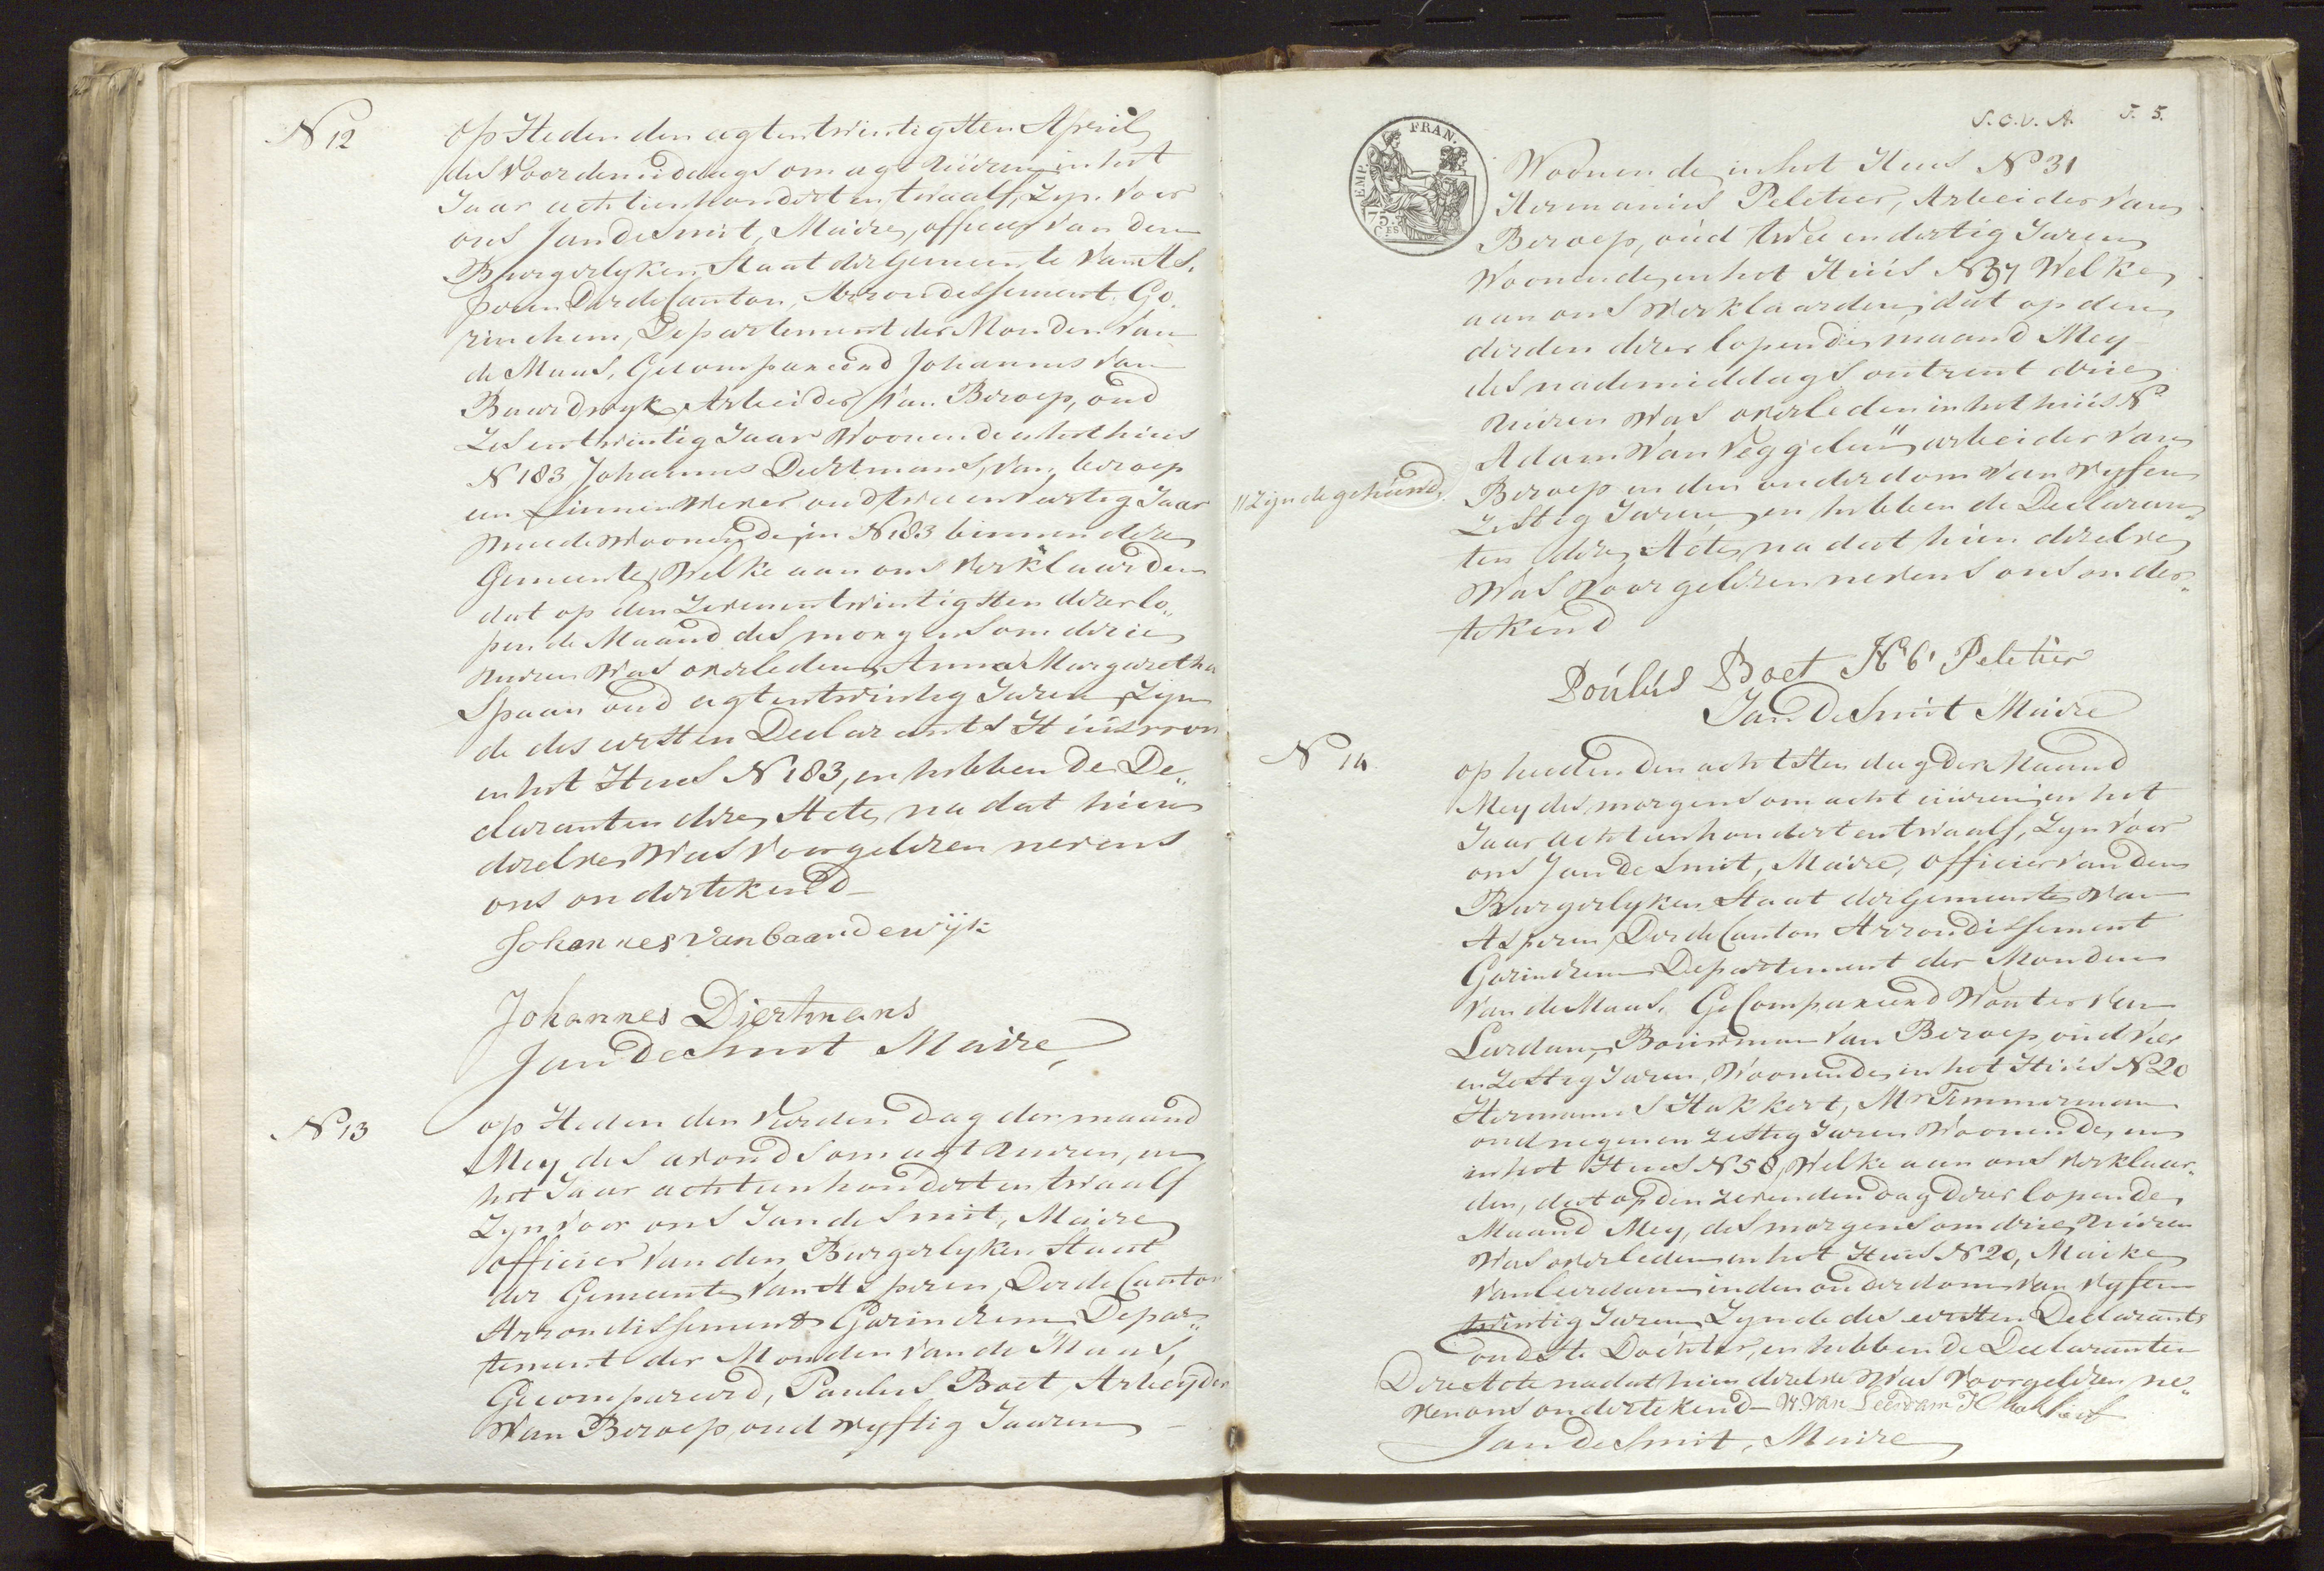 N 12
op Heden den agtentwintigsten April
des voordemiddags om agt uuren in het
Jaar achtienhondert en twaalf, Zyn voor
ons Jan de Smit, Maire, officier van den
Burgerlyken Staat der Gemeente van As„
peren Derde Canton, Arrondissement Go„
rinchem, Departement der Monden van
de Maas, Gecompareerd Johannes van
Baardwyk Arbeider van Beroep, oud
Zes entwintig Jaar Woonende in het huis
N 183 Johannes Diertmans, van beroep
een Linnen Wever oud twee en veertig Jaar
meede woonende in N 183 binnen deze
Gemeente, Welke aan ons verklaarden
dat op den Zevenentwintigsten dezer lo„
pende Maand des morgens om drie
uuren Was overleden Anna Margaretha
Spaan oud agtentwintig Jaren, Zyn
de des eersten Declarants Huisvrou
in het Huis N 183, en hebben de De„
claranten deze Acte, na dat hien
dezelve Was voorgelezen nevens
ons ondertekend
Johannes van baardewijk
Johannes Diertmans
Jan De Smit Maire
N 13
op Heden den Vierden Dag der maand
Mey des avonds om agt uuren, in
het Jaar achtienhondert en twaalf
Zyn voor ons Jan de Smit, Maire
officier van den Burgerlyken Staat
der Gemeente van Asperen, Derde Canton
Arrondissement Gorinchem, Depar„
tement der Monden van de Maas,
Gecompareerd, Paulus Boet, Arbeijder
van Beroep, oud vyftig Jaaren
S.C.V.A. F. 5.
EMP. FRAN.
75.
C.ES
Woonende in het Huis N 31
Hermanus Peletier, Arbeider van
Beroep, oud twee en dertig Jaren
Woonende in het Huis N 37 Welke
aan ons verklaarden, dat op den
derden dezer lopende maand Mey
des nademiddags ontrent drie
uuren Was overleden in het huis N
Adam van Veggelen" arbeider van
"Zijnde gehuwd,
Beroep in den ouderdom van vyf en
Zestig Jaren, en hebben de Declaran„
ten deze Acte, na dat hien dezelve
Was voorgelezen nevens ons onder„
tekend
Poulus Boet Peletier
Jan De Smit Maire
N 14
op heeden den achtsten dag der Maand
Mey des morgens om acht uuren in het
Jaar achtienhondert en twaalf, Zyn voor
ons Jan de Smit, Maire, officier van den
Burgerlyken Staat der Gemeente van
Asperen, Derde Canton Arrondissement
Gorinchem Departement der Monden
van de Maas. Gecompareerd Wouter van
Leerdam, Bouwman van Beroep, oud vier
en Zestig Jaren, Woonende in het Huis N 20
Hermanus Hakkert, Mr Timmerman
oud negen en zestig Jaren Woonende in
in het Huis N 58, Welke aan ons verklaar„
den, dat op den zevenden dag dezer lopende
Maand Mey, des morgens om drie uuren
Was overleden in het Huis N 20, Maike
van Leerdam in den ouderdom van vyf en
twintig Jaren, Zynde des eersten Declarants
oudste Dochter, en hebben de Declaranten
Deze Acte na dat hien dezelve Was voorgelezen ne„
ven ons ondertekend W. van Leerdam
Jan De Smit, Maire